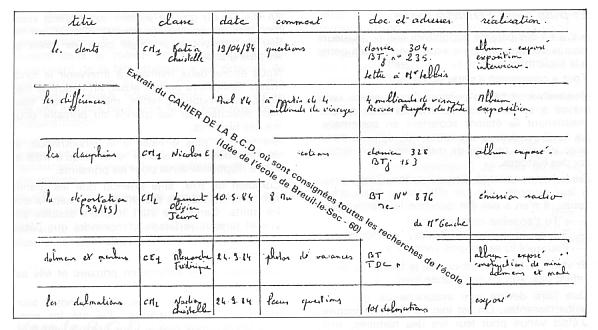 titre classe date comment doc. et adresses réalisation.
les dents CM1 Katia Christelle 19/04/84 questions dossier 304. BTj n° 235. lettre à Mr album - exposé exposition interview.
les différences Avril 84 à partir de 4 milliards de visages 4 milliards de visages Album exposition
les dauphins CM1 Nicolas E dossier 328 BTj 153 album exposé.
la déportation (39/45) CM2 Laurent Olivier Jérome 10.5.84 8 Mai BT N° 876 de Mr émission radio
dolmens et menhirs CE1 Alexandre 24.9.84 photos de vacances BT TDC album - exposé construction de mini dolmens et
les dalmatiens CM2 Christelle 24.9.84 questions 101 dalmatiens exposé
Extrait du CAHIER DE LA B.C.D. où sont consignées toutes les recherches de l'école
(Idée de l'école de Breuil-le-Sec - 60)